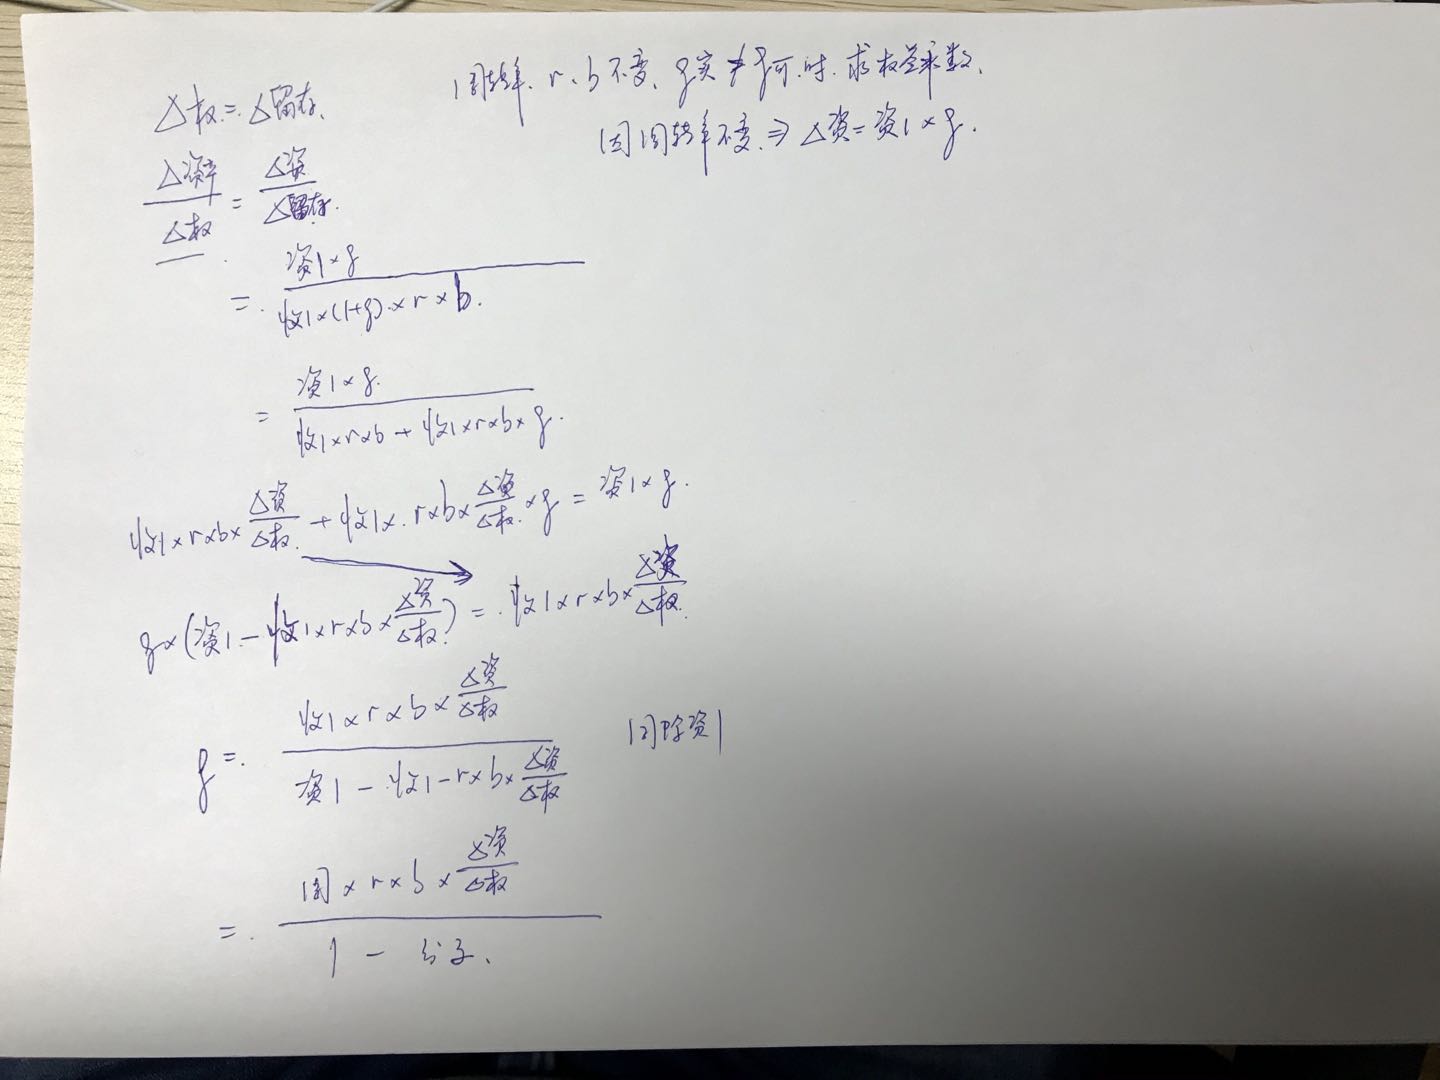 周转率、r、b不变、g实≠g可时.求权益乘数、
因周转率不变、⇒ △资=资1×g.
△权=△留存、
△资产/△权 = △资/△留存.
= 资1×g / 收1×(1+g)×r×b.
= 资1×g. / 收1×r×b + 收1×r×b×g.
收1×r×b×△资/△权 + 收1×r×b×△资/△权×g = 资1×g.
g×(资1-收1×r×b×△资/△权) = 收1×r×b×△资/△权.
g = 收1×r×b×△资/△权 / 资1-收1-r×b×△资/△权
同除资1
= 周×r×b×△资/△权 / 1-分子、